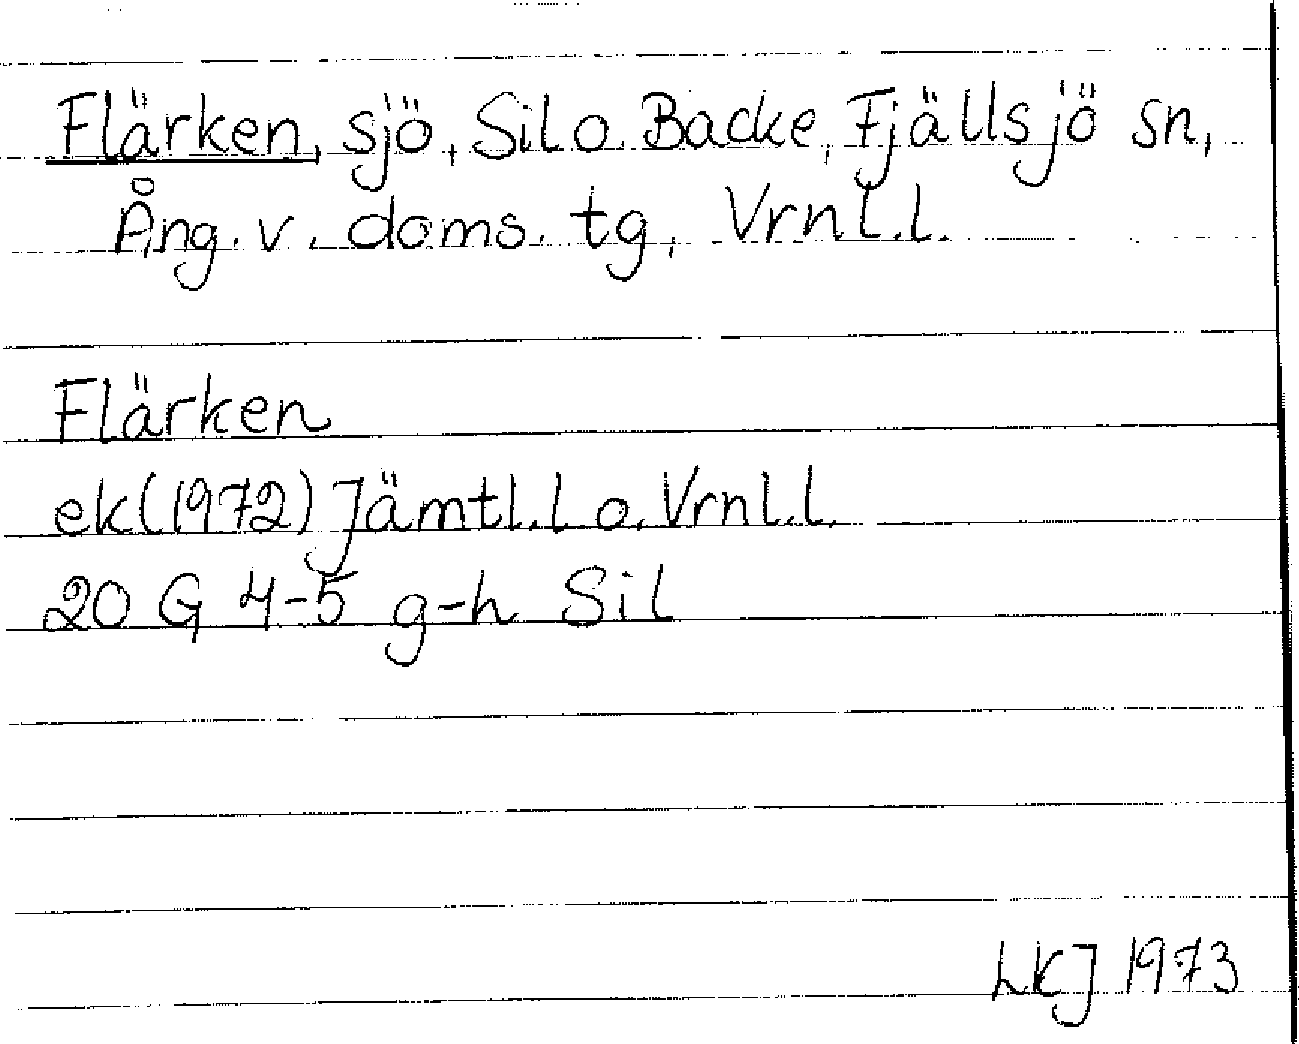 Flärken, sjö, Sil o. Backe, Fjällsjö sn,
Ång. v. doms. tg, Vrnl.l.
Flärken
ek(1972) Jämtl.l o. Vrnl.l.
20 G 4-5 g-h Sil
LKJ 1973